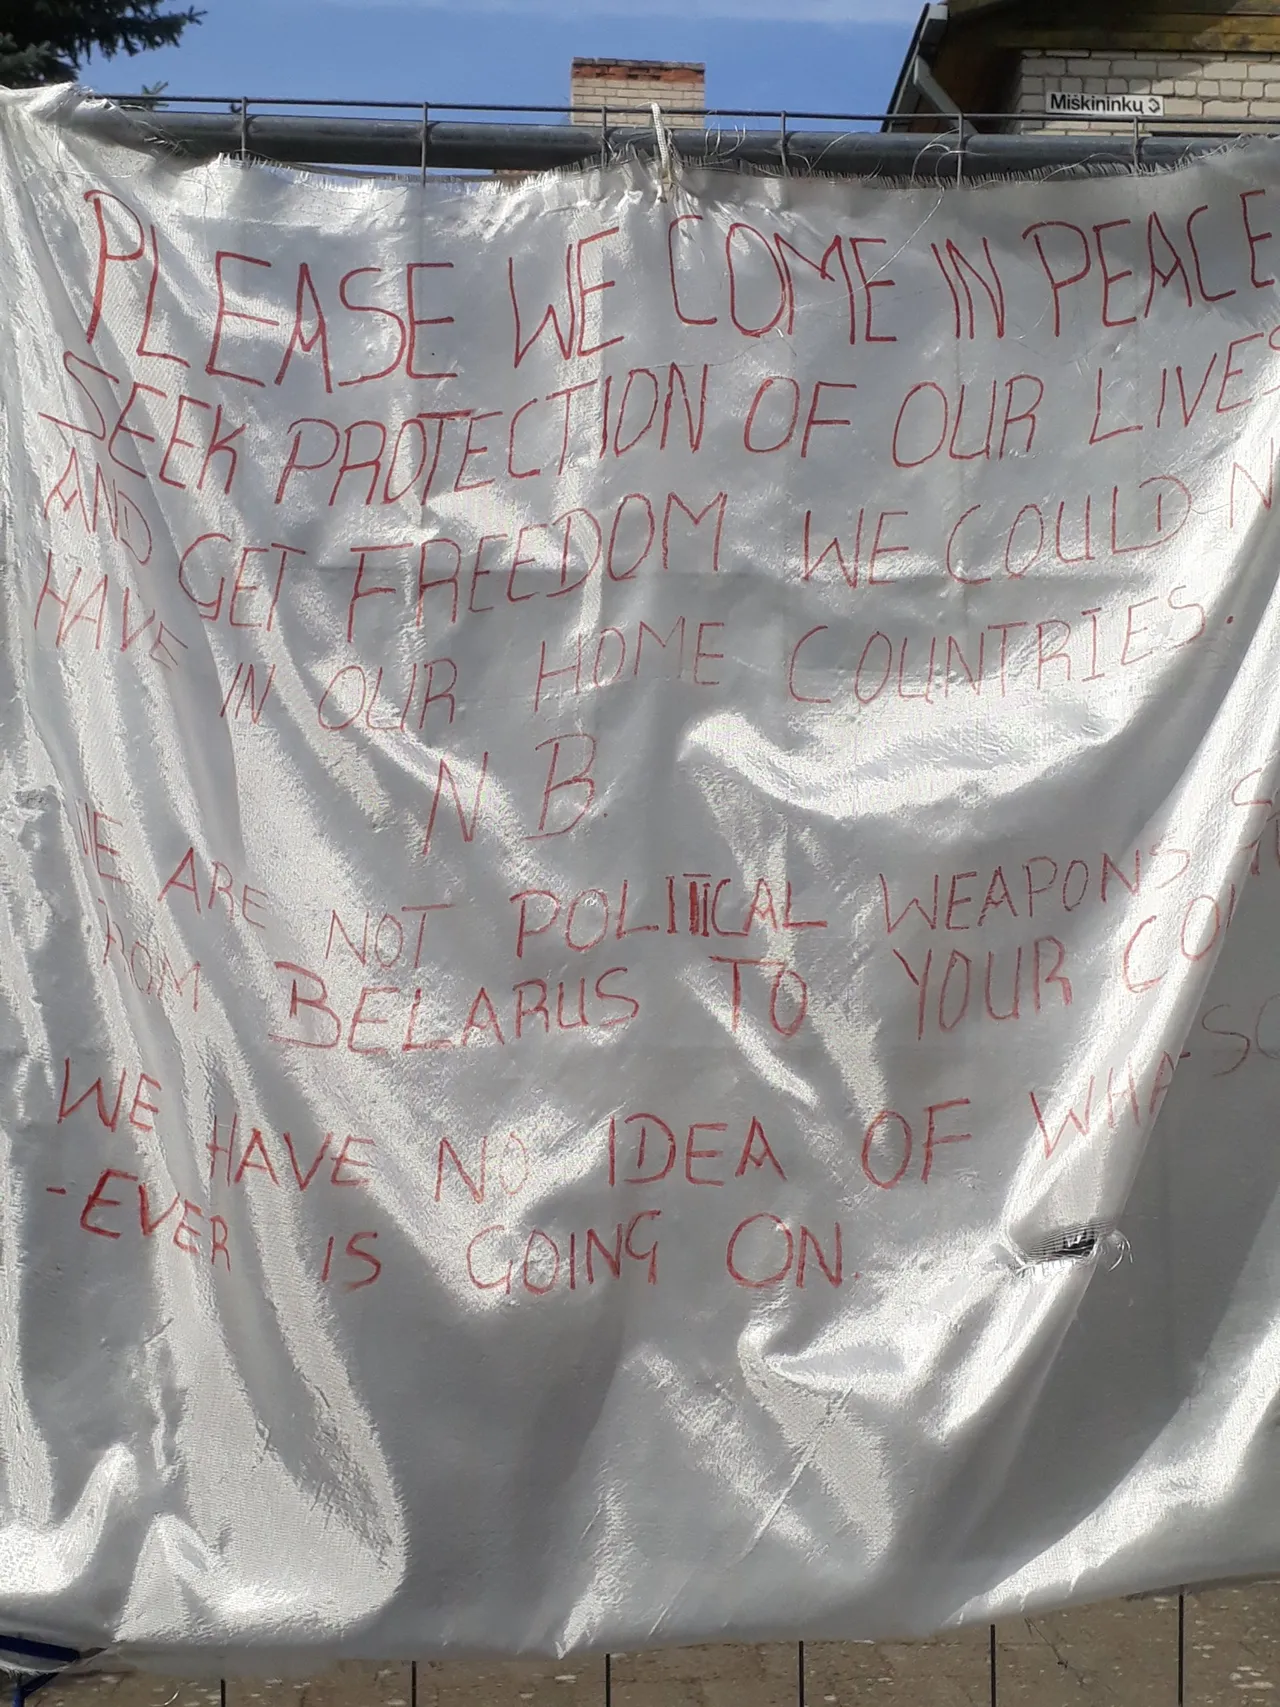 Miškininkų 3
PLEASE WE COME IN PEACE
SEEK PROTECTION OF OUR LIVES
AND GET FREEDOM WE COULD N
HAVE IN OUR HOME COUNTRIES.
N B.
WE ARE NOT POLITICAL WEAPONS
FROM BELARUS TO YOUR
WE HAVE NO IDEA OF WHAT-SO
-EVER IS GOING ON.